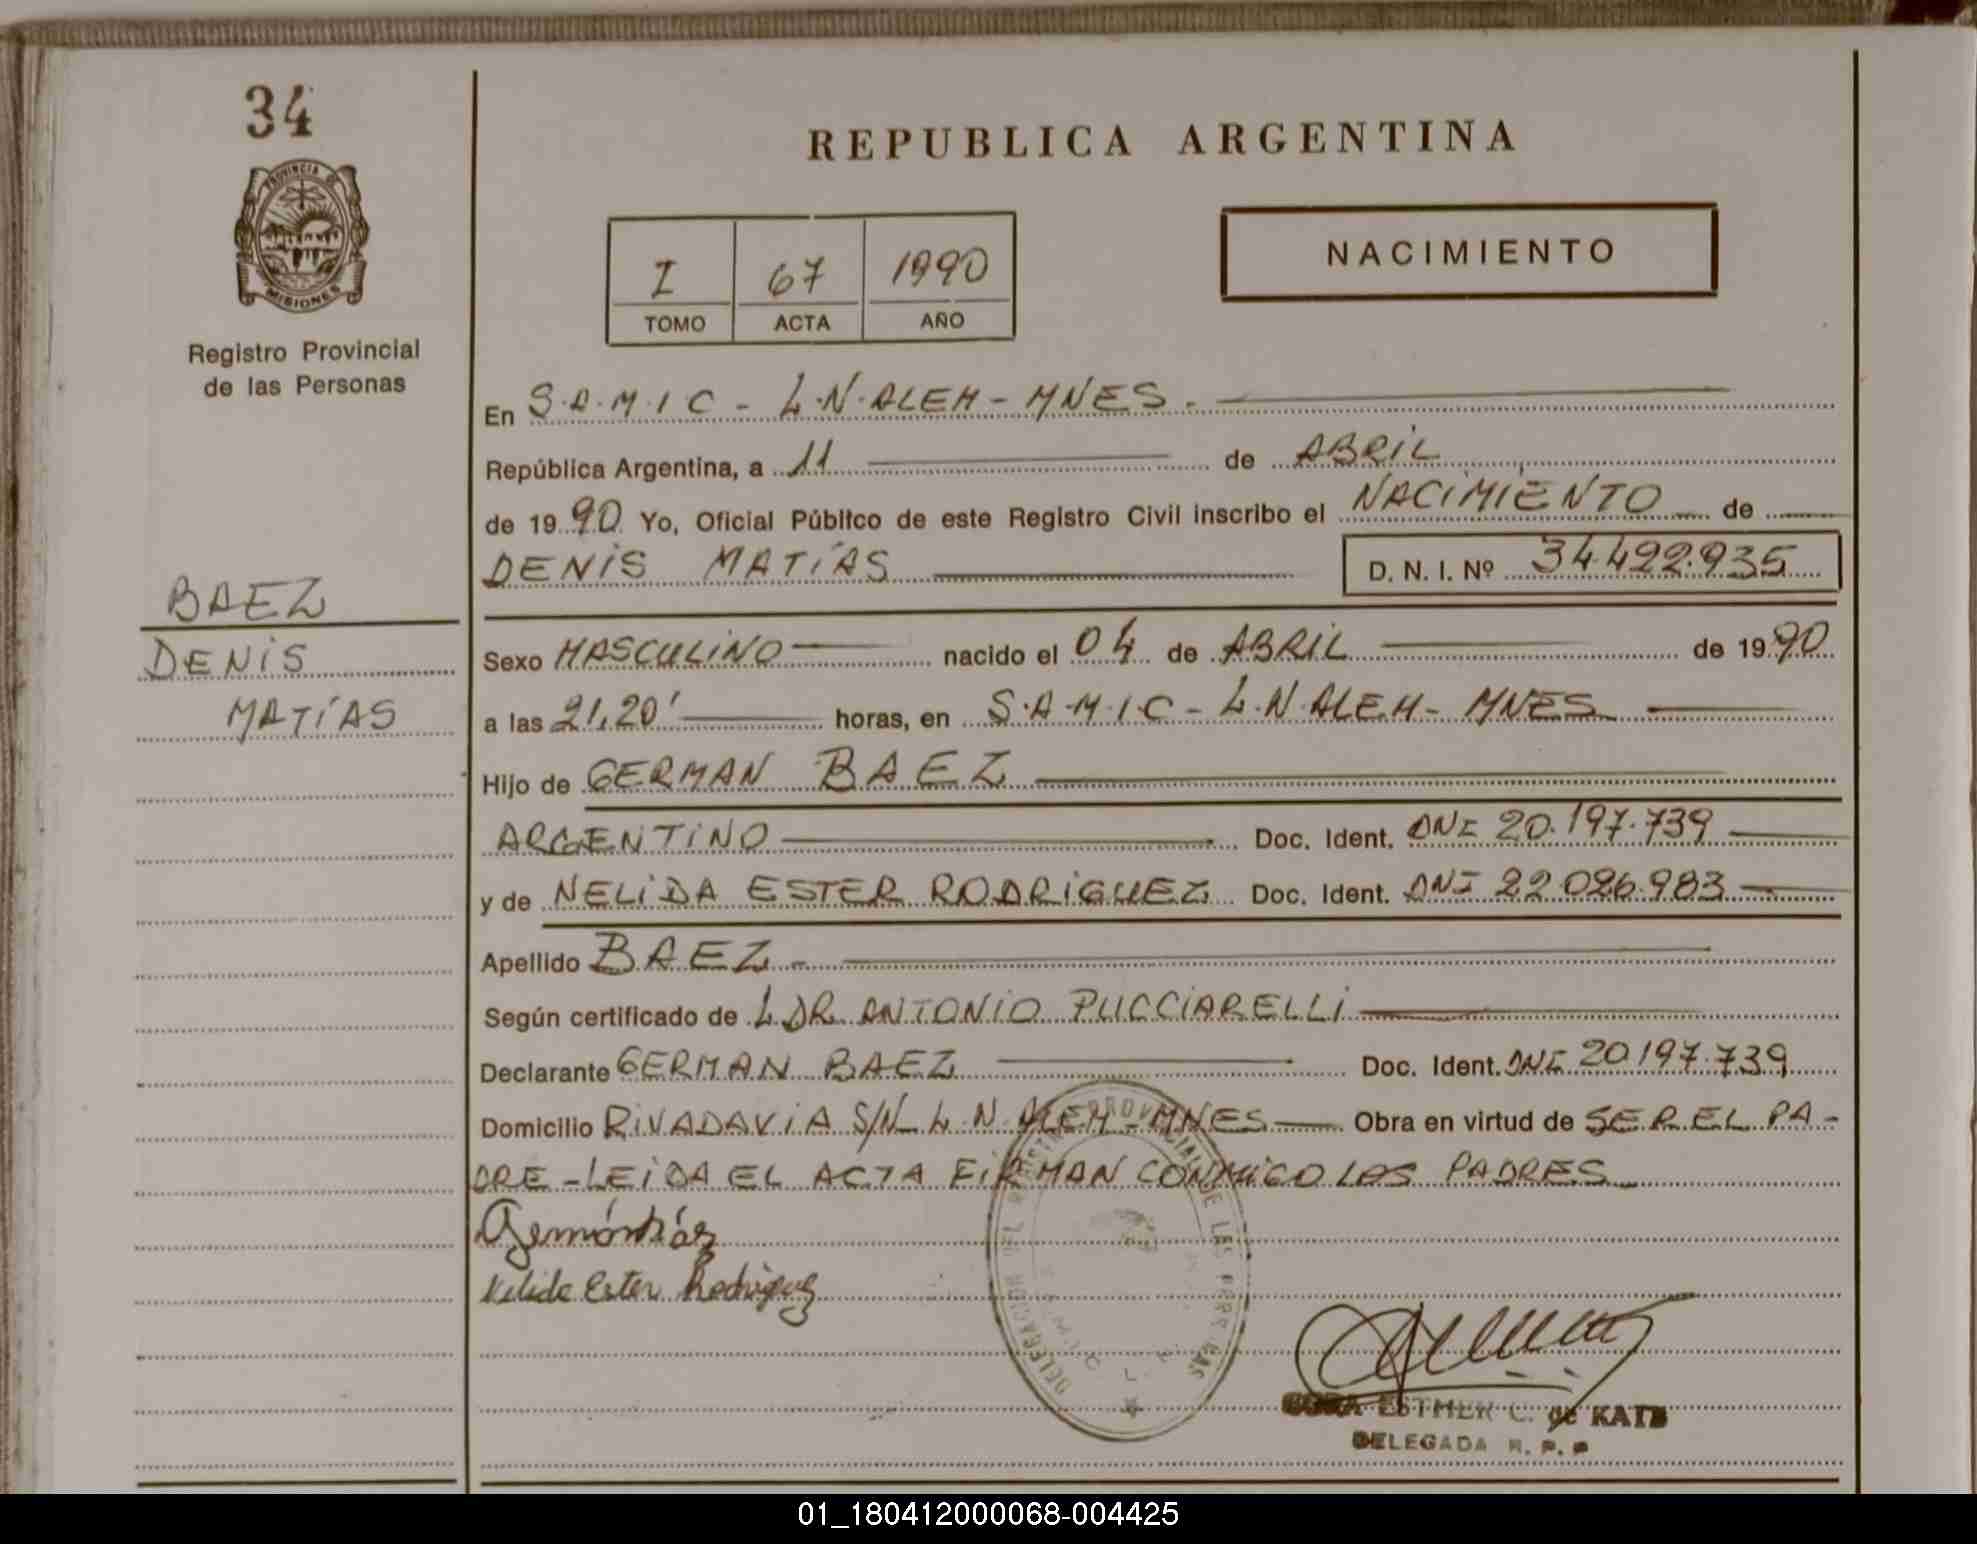 34
REPUBLICA ARGENTINA
PROVINCIA DE
MISIONES
Registro Provincial
de las Personas
I 67 1990
TOMO ACTA AÑO
NACIMIENTO
En S.A.M.I.C - L.N.ALEM - MNES.
República Argentina, a 11 de ABRIL
de 1990 Yo, Oficial Público de este Registro Civil inscribo el NACIMIENTO de
DENIS MATÍAS D. N. I. Nº 34.492.935
BAEZ
DENIS
MATÍAS
Sexo MASCULINO nacido el 04 de ABRIL de 1990
a las 21,20' horas, en S.A.M.I.C - L.N.ALEM - MNES
Hijo de GERMAN BAEZ
ARGENTINO Doc. Ident. DNI 20.197.739
y de NELIDA ESTER RODRIGUEZ Doc. Ident. DNI 22.026.983
Apellido BAEZ -
Según certificado de L DR. ANTONIO PUCCIARELLI
Declarante GERMAN BAEZ Doc. Ident. DNI 20.197.739
Domicilio RIVADAVIA S/N L.N.ALEM - MNES Obra en virtud de SER EL PA-
DRE - LEIDA EL ACTA FIRMAN CONMIGO LOS PADRES
Nelida Ester Rodriguez
DELEGACION DEL REGISTRO PROVINCIAL DE LAS PERSONAS
ESTHER C. de KATZ
DELEGADA R. P. P
01_180412000068-004425